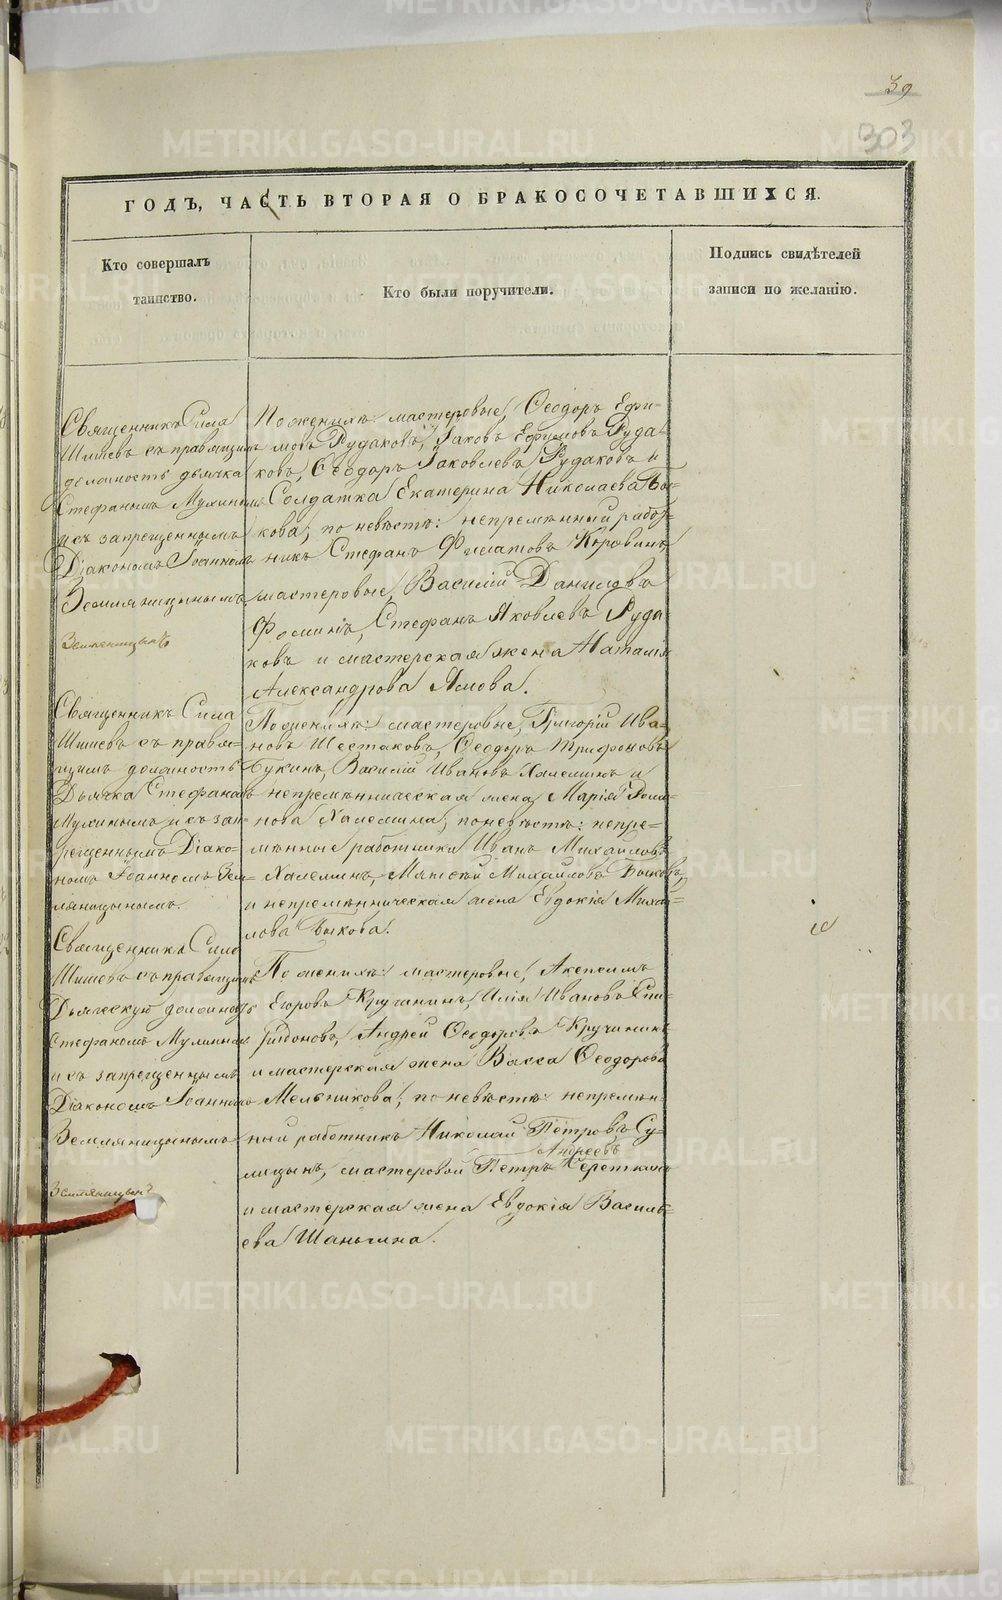 39
303
ГОДЪ, ЧАСТЬ ВТОРАЯ О БРАКОСОЧЕТАВШИХСЯ.
Кто совершалъ
таинство.
Кто были поручители.
Подпись свидѣтелей
записи по желанію.
Священникъ Сила
Шишевъ съ правящимъ
должность дьячка
Стефаномъ Мулинымъ
и съ запрещеннымъ
Діакономъ Іоанномъ
Земляницынымъ
Земляницынъ
По женихѣ: мастеровые, Ѳеодоръ Ефи-
мовъ Рудаковъ, Іаковъ Ефимовъ Руда-
ковъ, Ѳеодоръ Іаковлевъ Рудаковъ и
Солдатка Екатерина Николаева Бы-
кова, по невѣстѣ: непремѣнный работ-
никъ Стефанъ Филатовъ Коровинъ
мастеровые, Василій Даниловъ
Ѳоминъ, Стефанъ Яковлевъ Руда-
ковъ и мастерская жена Наталія
Александрова Ямова.
Священникъ Сила
Шишевъ съ правя-
щимъ должность
Дьячка Стефаномъ
Мулинымъ и съ зап-
рещеннымъ Діако-
номъ Іоанномъ Зем-
ляницынымъ.
По женихѣ: мастеровые, Григорій Ива-
новъ Шестаковъ, Ѳеодоръ Трифоновъ
Букинъ, Василій Ивановъ Халеминъ и
непремѣнническая жена Марія Рома-
нова Халемина, по невѣстѣ: непре-
мѣнные работники Иванъ Михайловъ
Халеминъ, Матѳей Михайловъ Быковъ,
и непремѣнническая жена Евдокія Михай-
лова Быкова.
Священникъ Сила
Шишевъ съ правящимъ
Дьяческую должность
Стефаномъ Мулинымъ
и съ запрещеннымъ
Діакономъ Іоанномъ
Земляницынымъ
Земляницынъ
По женихѣ: мастеровые, Акепсимъ
Егоровъ Кручининъ, Илія Ивановъ Спи-
ридоновъ, Андрей Ѳеодоровъ Кручининъ
и мастерская жена Васса Ѳеодорова
Мельникова, по невѣстѣ: непремѣн-
ный работникъ Николай Петровъ Су-
лицынъ, мастеровой Петръ Андреевъ Череткинъ
и мастерская жена Евдокія Василь-
ева Шаньгина.
METRIKI.GASO-URAL.RU